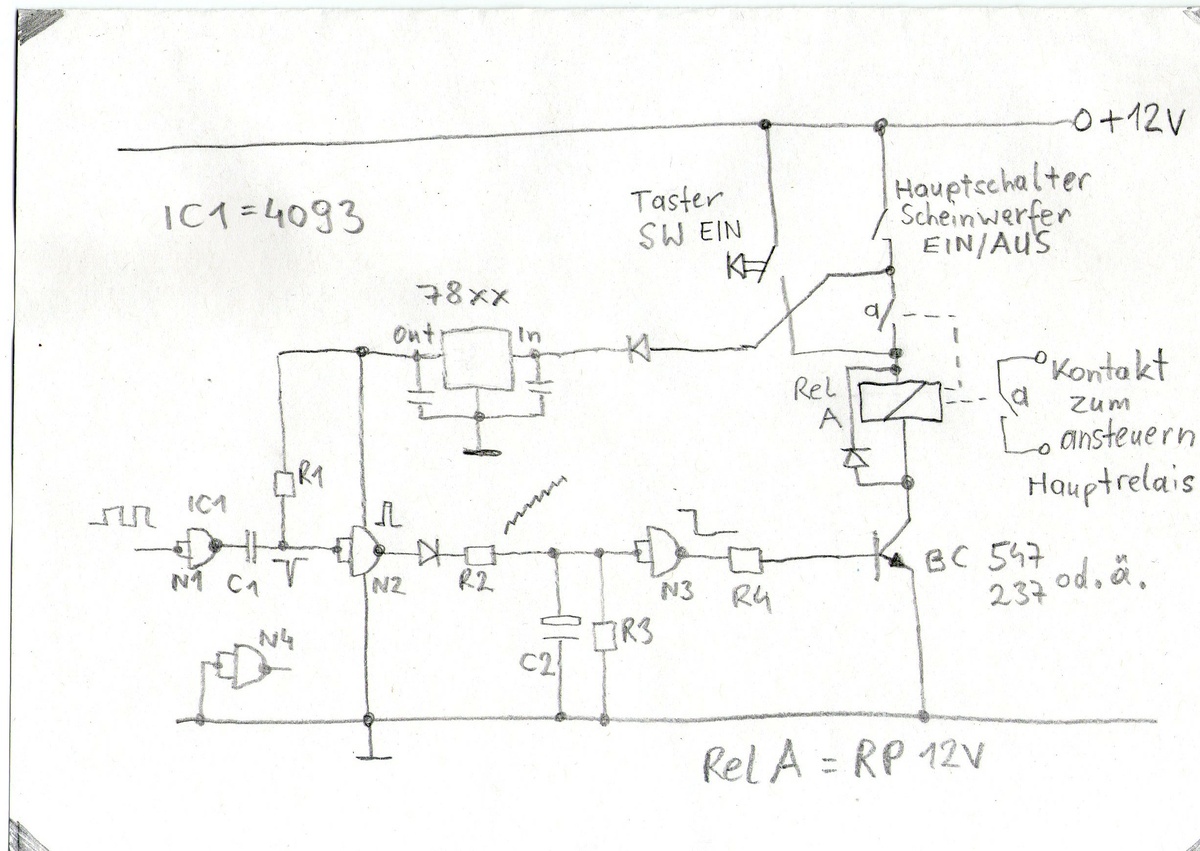 O +12V
Hauptschalter
Scheinwerfer
EIN/AUS
Taster
SW EIN
IC1=4093
78xx
Out
In
a
Rel
A
a
Kontakt
zum
ansteuern
Hauptrelais
R1
IC1
N1
C1
N2
R2
N3
R4
BC 547
237 od. ä.
N4
C2
R3
Rel A = RP 12V